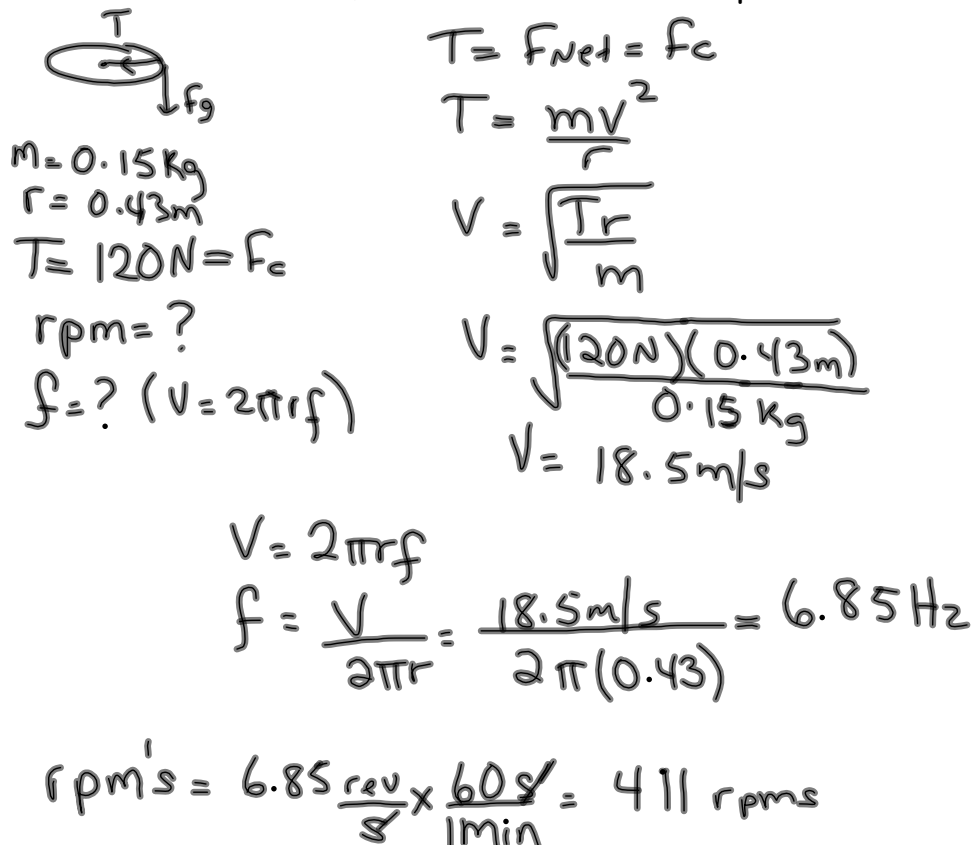 T
Fg
m = 0.15 Kg
r = 0.43m
T = 120N = Fc
rpm = ?
f = ? (V = 2πrf)
T = FNet = Fc
T = mv²/r
V = √(Tr/m)
V = √((120N)(0.43m)/0.15 Kg)
V = 18.5 m/s
V = 2πrf
f = V/2πr = 18.5m/s/2π(0.43) = 6.85 Hz
rpm's = 6.85 rev/s × 60s/1min = 411 rpms